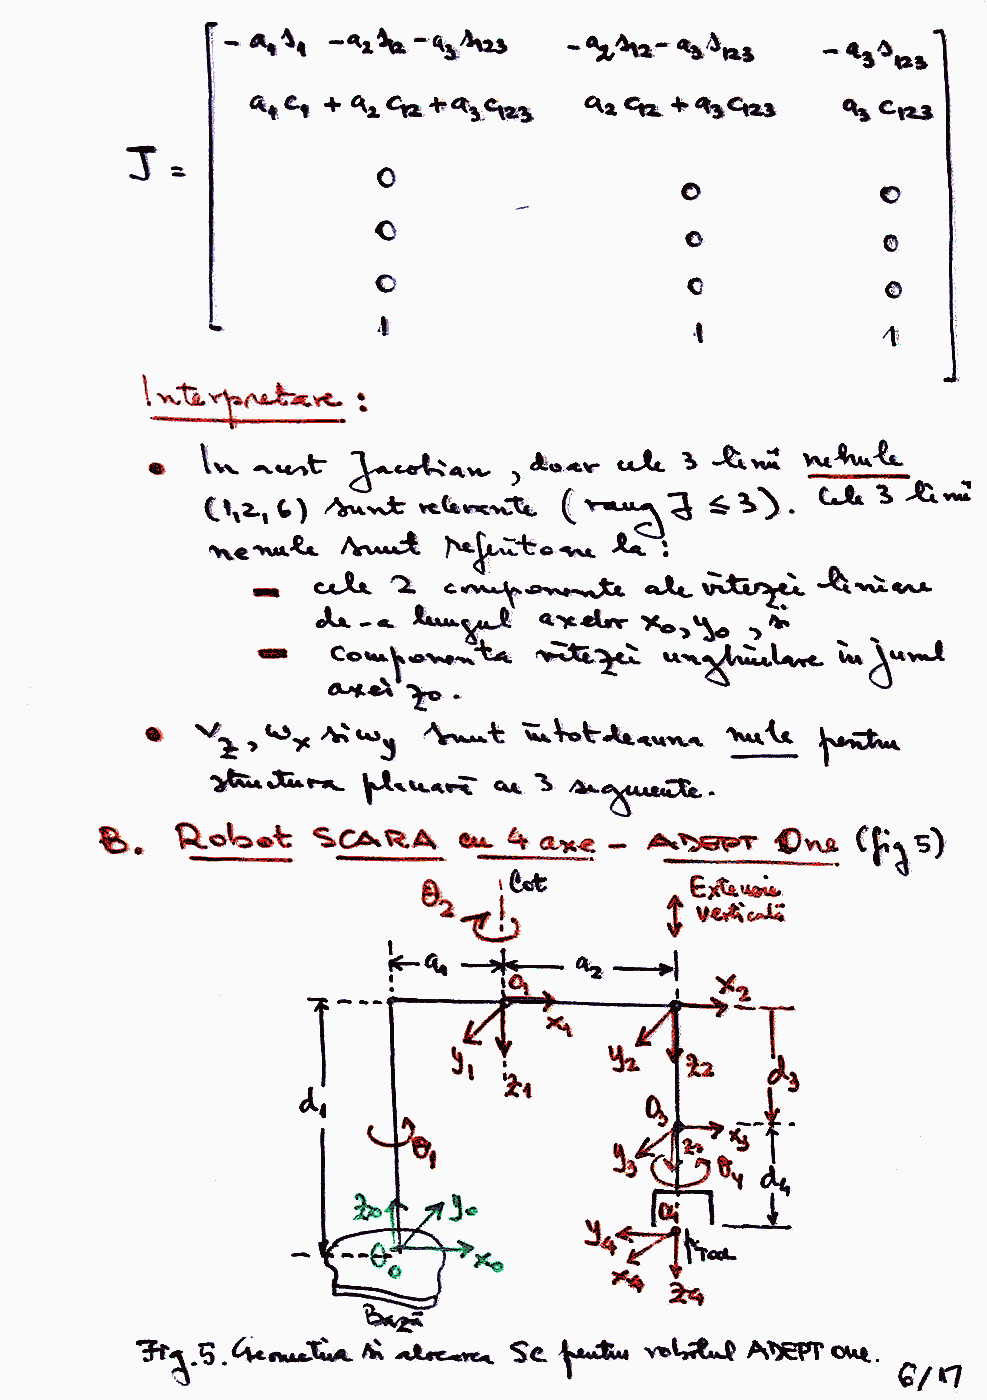 - a1 s1 - a2 s12 - a3 s123   - a2 s12 - a3 s123   - a3 s123
a1 c1 + a2 c12 + a3 c123   a2 c12 + a3 c123   a3 c123
J =
0 0 0
0 0 0
0 0 0
1 1 1
Interpretare :
• In acest Jacobian, doar cele 3 linii nenule
(1,2,6) sunt relevante (rang J ≤ 3). Cele 3 linii
nenule sunt referitoare la :
– cele 2 componente ale vitezei liniare
de-a lungul axelor x0, y0, și
– componenta vitezei unghiulare în jurul
axei z0.
• vz, ωx si ωy sunt întotdeauna nule pentru
structura planară cu 3 segmente.
B. Robot SCARA cu 4 axe – ADEPT One (fig 5)
θ2 Cot Extensie
verticală
a1 a2
O1 x1 x2
y1 z1 y2 z2
d1 d3
O3 x3
θ1 y3 z3 θ4 d4
z0 y0 O4
θ0 x0 y4 x4 z4 Ptool
Bază
Fig.5. Geometria si alocarea SC pentru robotul ADEPT one.
6/17